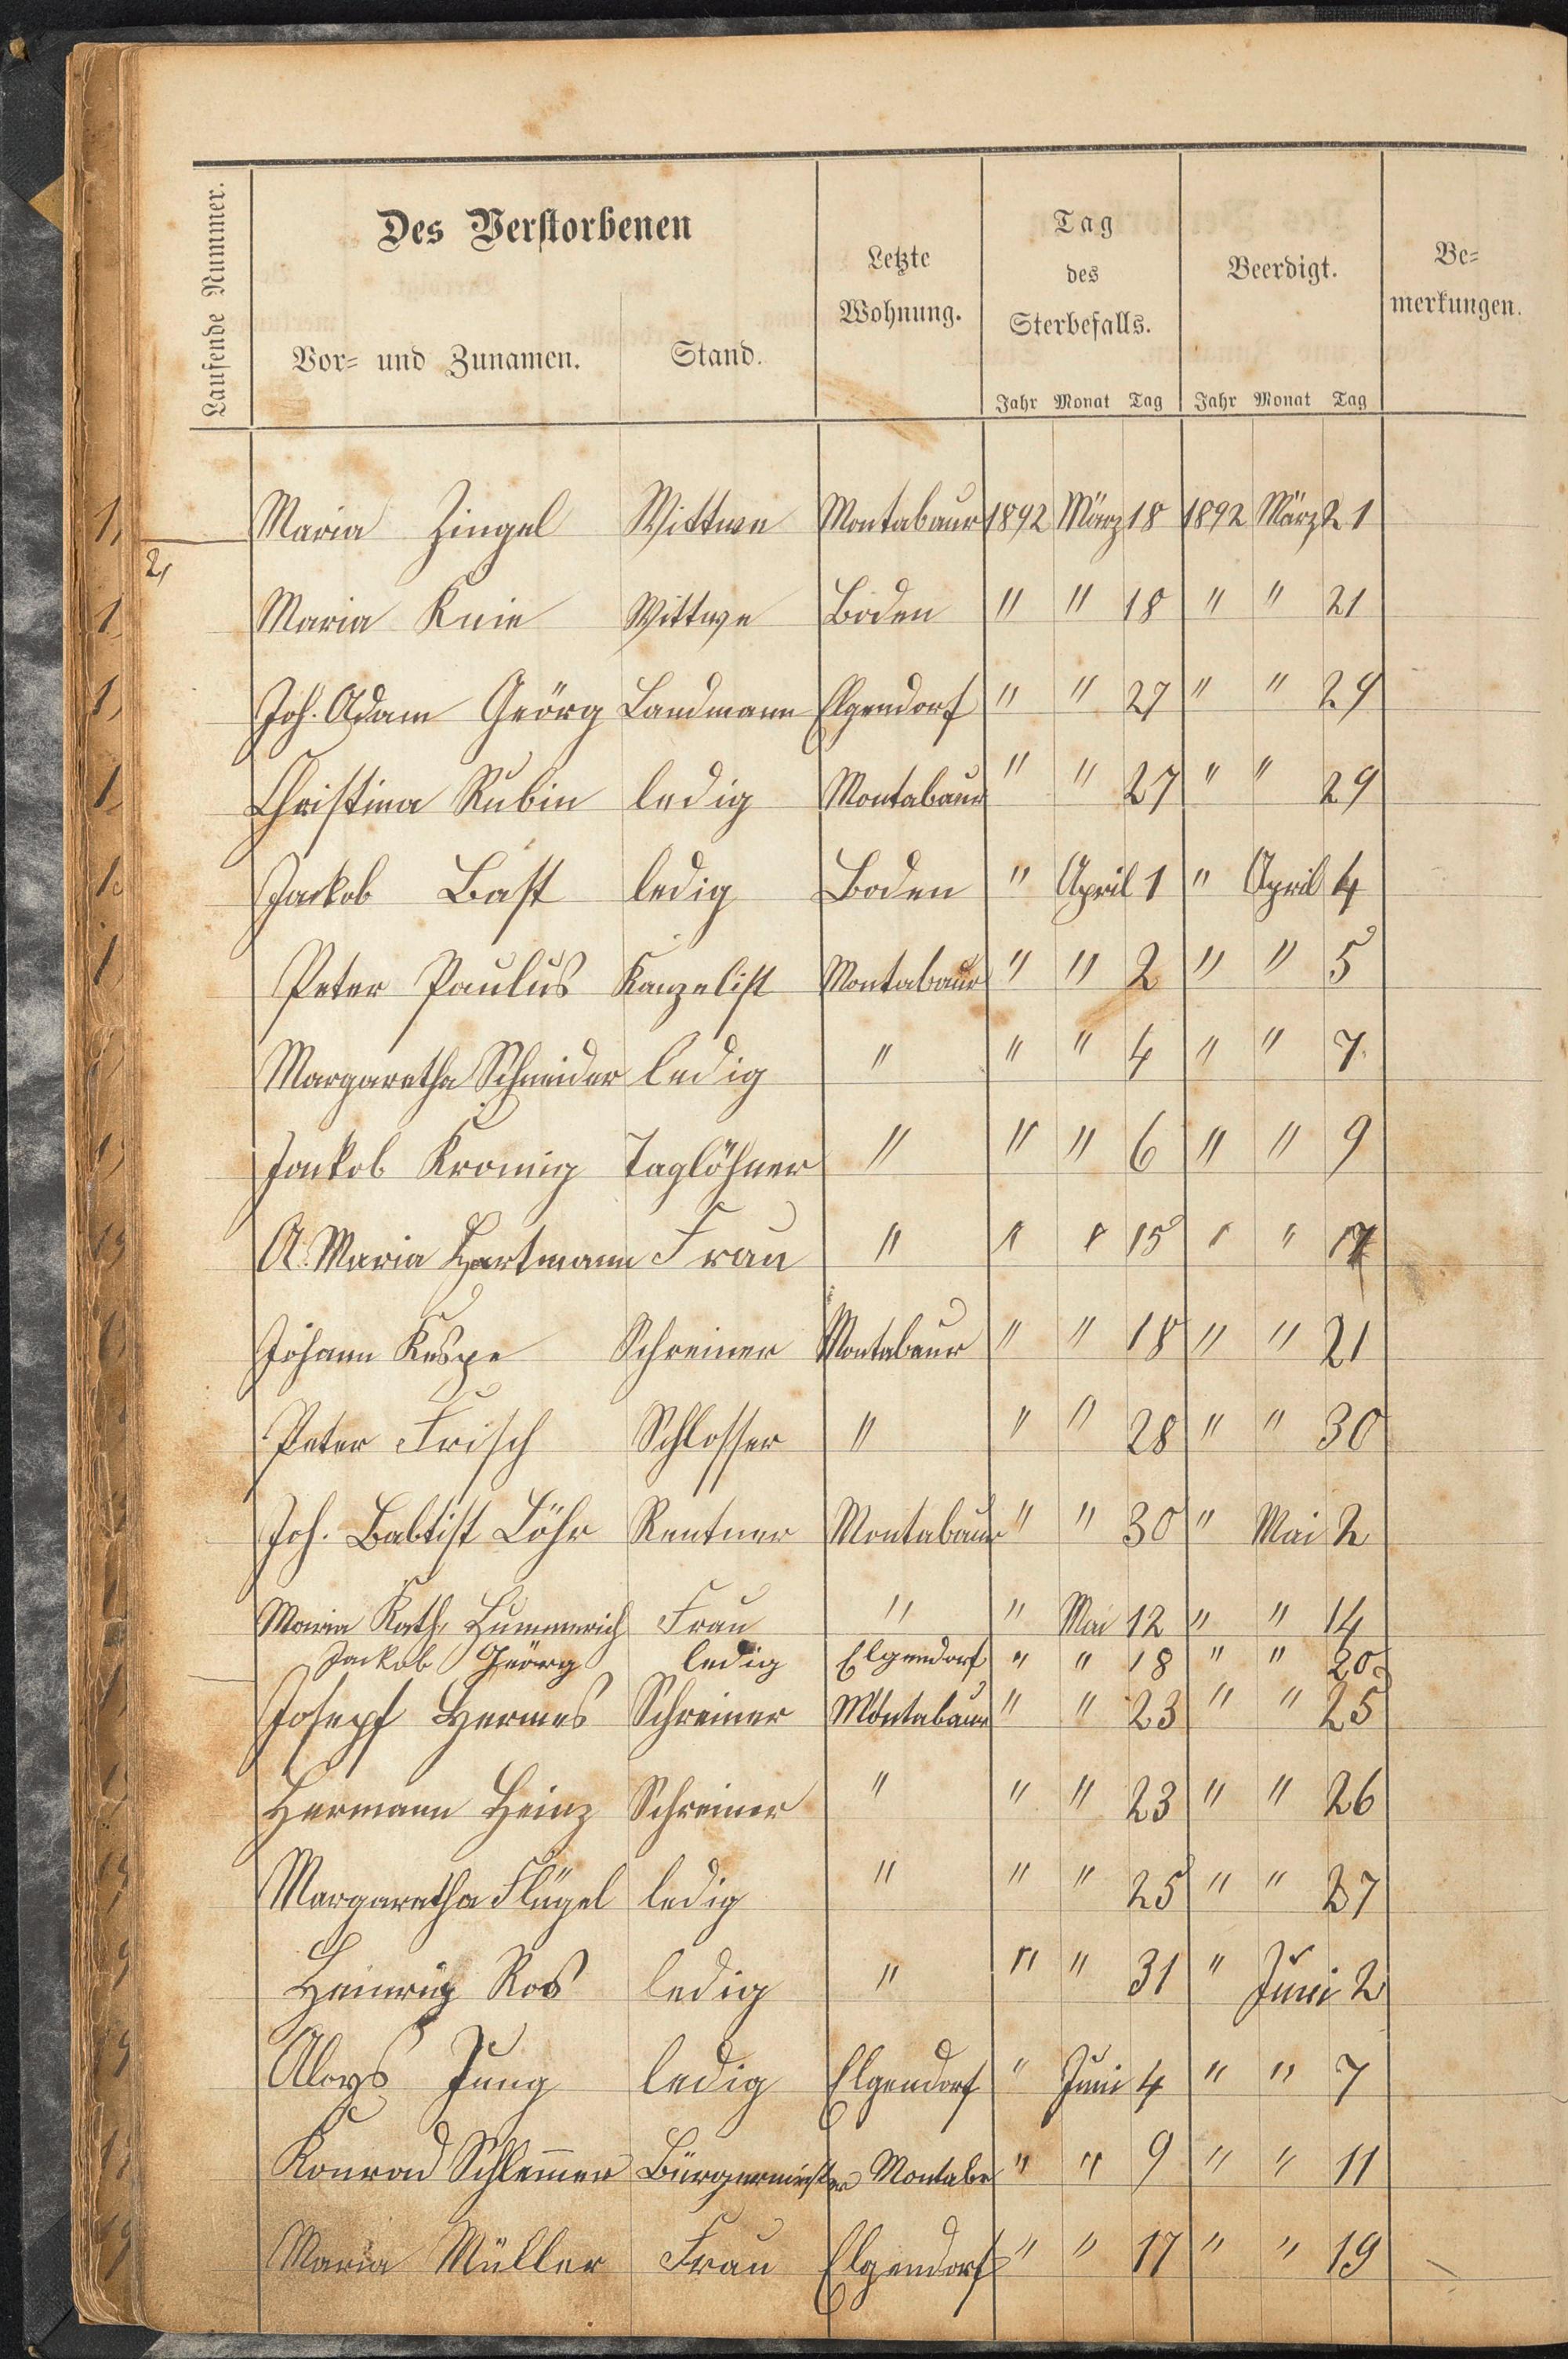 Laufende Nummer.
Des Verstorbenen
Vor- und Zunamen.
Stand.
Letzte
Wohnung.
Tag
des
Sterbefalls.
Jahr Monat Tag
Beerdigt.
Jahr Monat Tag
Be-
merkungen.
Maria Zingel Wittwe Montabaur 1892 März 18 1892 März 21
Maria Knie Wittwe Boden " " 18 " " 21
Joh. Adam Geörg Landmann Elgendorf " " 27 " " 29
Christina Rubin ledig Montabaur " " 27 " " 29
Jackob Bast ledig Boden " April 1 " April 4
Peter Paulus Kanzelist Montabaur " " 2 " " 5
Margaretha Schneider ledig " " " 4 " " 7
Jackob Kromig Taglöhner " " " 6 " " 9
A. Maria Hartmann Frau " " " 15 " " 17
Johann Kespe Schreiner Montabaur " " 18 " " 21
Peter Frisch Schlosser " " " 28 " " 30
Joh. Babtist Löhr Rentner Montabaur " " 30 " Mai 2
Maria Kath. Hummerich Frau " " Mai 12 " " 14
Jackob Geörg ledig Elgendorf " " 18 " " 20
Josepf Hermes Schreiner Montabaur " " 23 " " 25
Hermann Heinz Schreiner " " " 23 " " 26
Margaretha Flügel ledig " " " 25 " " 27
Heinrig Ros ledig " " " 31 " Juni 2
Aloys Jung ledig Elgendorf " Juni 4 " " 7
Konrad Schlem̄er Bürgermeister Montabr " " 9 " " 11
Maria Müller Frau Elgendorf " " 17 " " 19